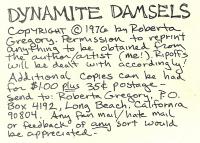 DYNAMITE DAMSELS
COPYRIGHT © 1976 by Roberta
Gregory. Permission to reprint
anything to be obtained from
the author/artist (me!). Ripoffs
will be dealt with accordingly!
Additional copies can be had
for $1.00 plus 35¢ postage -
send to: Roberta Gregory, P.O.
Box 4192, Long Beach, California
90804. Any fan mail/hate mail
or feedback of any sort would
be appreciated -